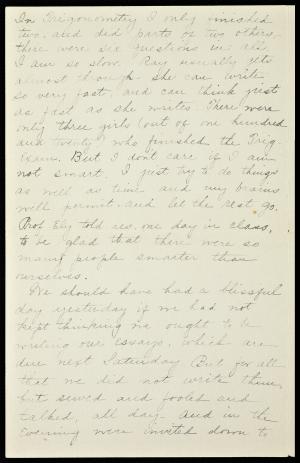 In Trigonometry I only finished
two, and did parts of two others,
there were six questions in all.
I am so slow. Ray usually gets
almost though - she can write
so very fast, and can think just
as fast as she writes. There were
only three girls (out of one hundred
and twenty) who finished the Trig-
Exam. But I don't care if I am
not smart. I just try to do things
as well as time and my brains
will permit and let the rest go.
Prof Ely told us, one day in class,
to be glad that there were so
many people smarter than
ourselves.
We should have had a blissful
day yesterday if we had not
kept thinking we ought to be
writing our essays, which are
due next Saturday. But for all
that we did not write them,
but sewed and fooled and
talked, all day. And in the
evening were invited down to